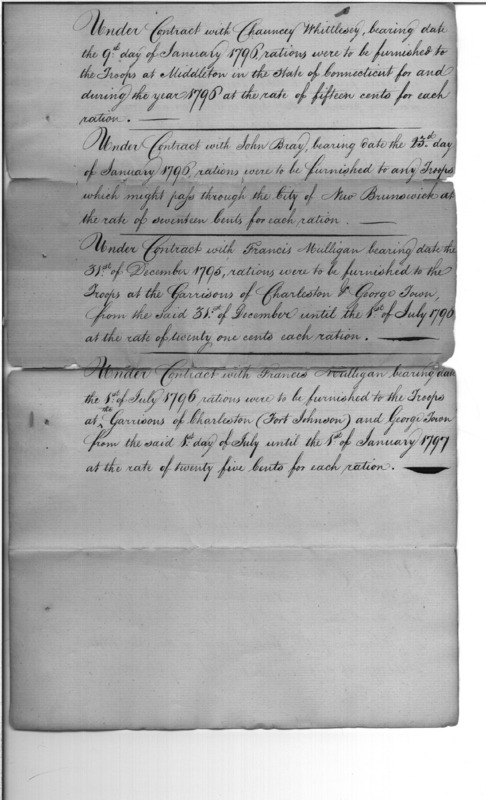 Under Contract with Chauncey Whittlesey, bearing date
the 9th day of January 1796, rations were to be furnished to
the Troops at Middleton in the State of Connecticut for and
during the year 1796 at the rate of fifteen cents for each
ration. —
Under Contract with John Bray, bearing date the 23d day
of January 1796, rations, were to be furnished to any Troops
which might pass through the City of New Brunswick at
the rate of seventeen Cents for each ration. —
Under Contract with Francis Mulligan bearing date the
31st of December 1795, rations were to be furnished to the
Troops at the Garrisons of Charleston & George Town,
from the said 31st of December until the 1st of July 1796
at the rate of twenty one cents each ration. —
Under Contract with Francis Mulligan, bearing date
the 1st of July 1796 rations were to be furnished to the Troops
at the Garrisons of Charleston (Fort Johnson) and George Town
from the said 1st day of July until the 1st of January 1797
at the rate of twenty five Cents for each ration. —